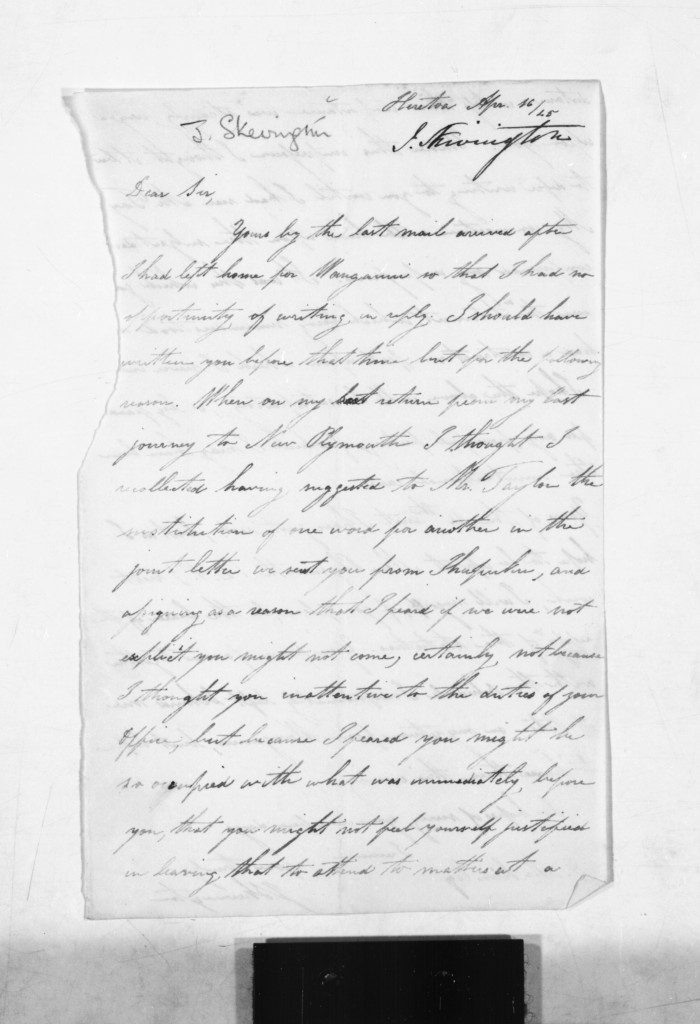 Heretoa Apr. 16/45
J. Skevington
J. Skevington
Dear Sir,
Yours by the last mail arrived after
I had left home for Wanganui so that I had no
opportunity of writing in reply. I should have
written you before that time but for the following
reason. When on my return from my last
journey to New Plymouth I thought I
recollected having suggested to Mr. Taylor the
institution of one word for another in the
joint letter we sent you from and
assigning as a reason that I feard if we were not
explicit you might not come, certainly not because
I thought you inattentive to the duties of your
Office, but because I feared you might be
so occupied with what was immediately before
you, that you might not feel yourself justified
in leaving that to attend to matters at a